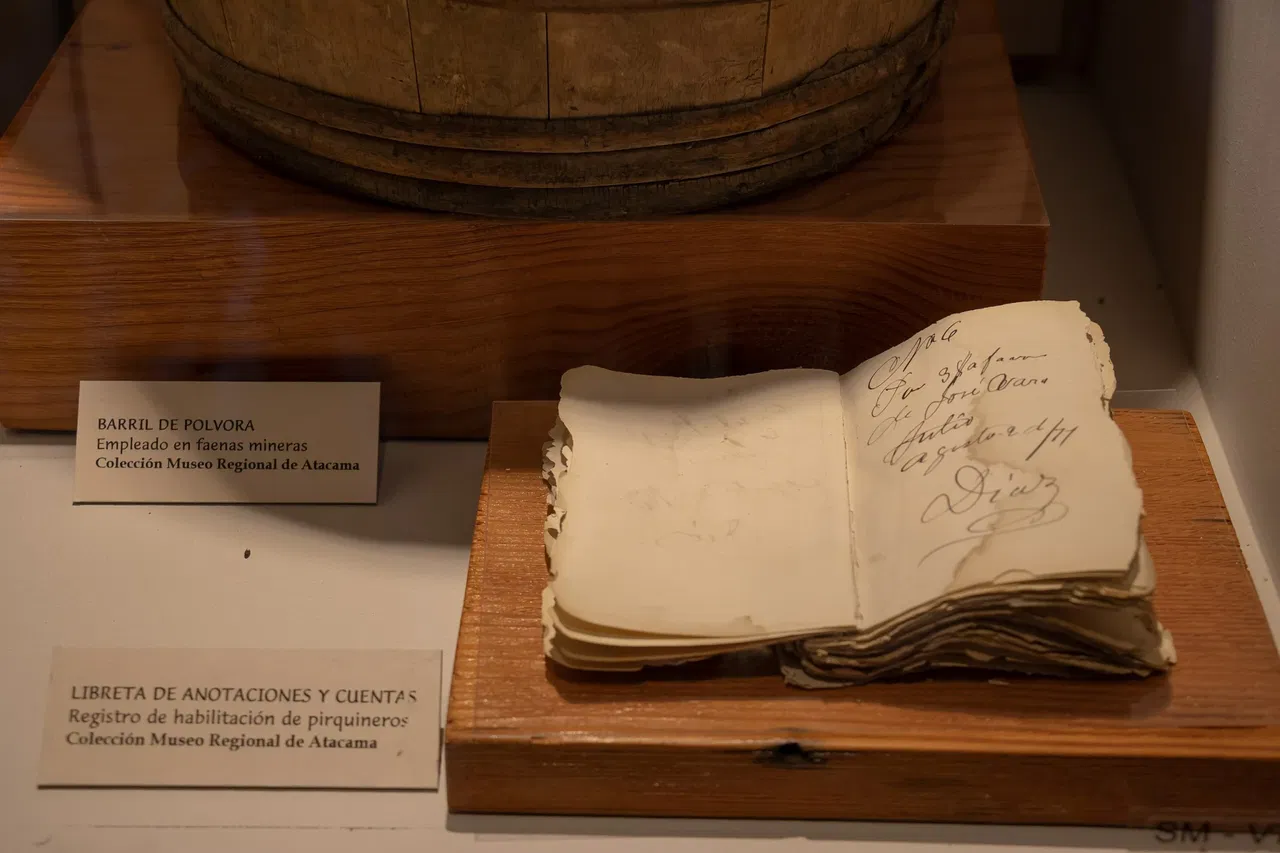 BARRIL DE POLVORA
Empleado en faenas mineras
Colección Museo Regional de Atacama
LIBRETA DE ANOTACIONES Y CUENTAS
Registro de habilitación de pirquineros
Colección Museo Regional de Atacama
No 6
Por 38
de José
Julio
Agosto 2 d/
Diaz
SM - V